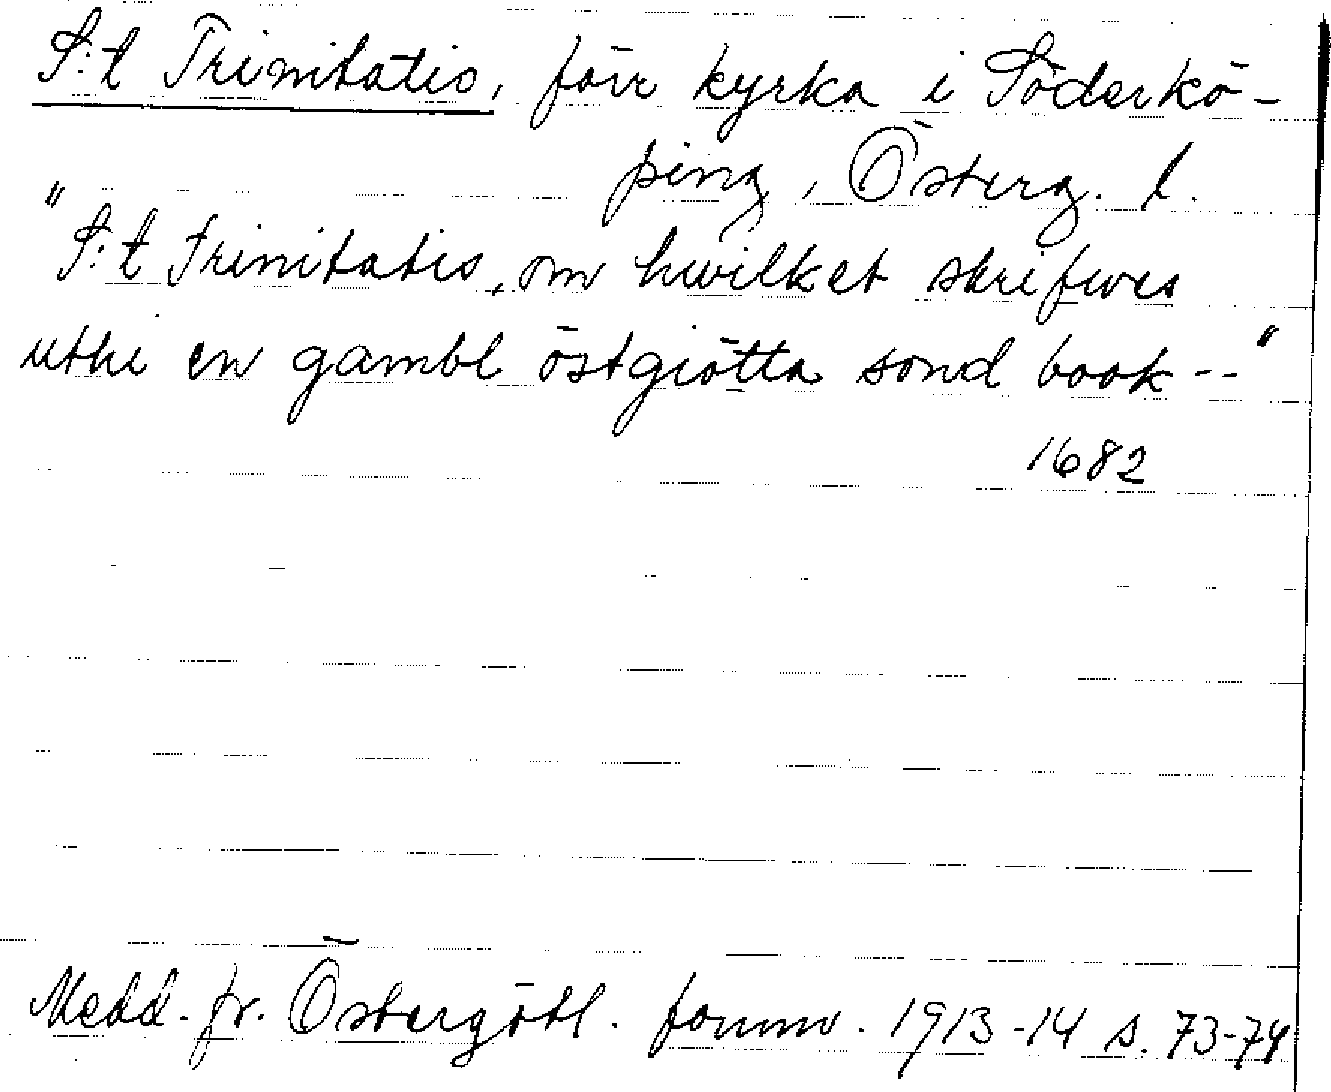 S:t Trinitatis, förr kyrka i Söderkö-
ping, Österg. l.
"S:t Trinitatis, om hwilket skrifwes
uthi en gambl östgiötta sond book --"
1682
Medd. fr. Östergötl. fornm. 1913-14 s. 73-74